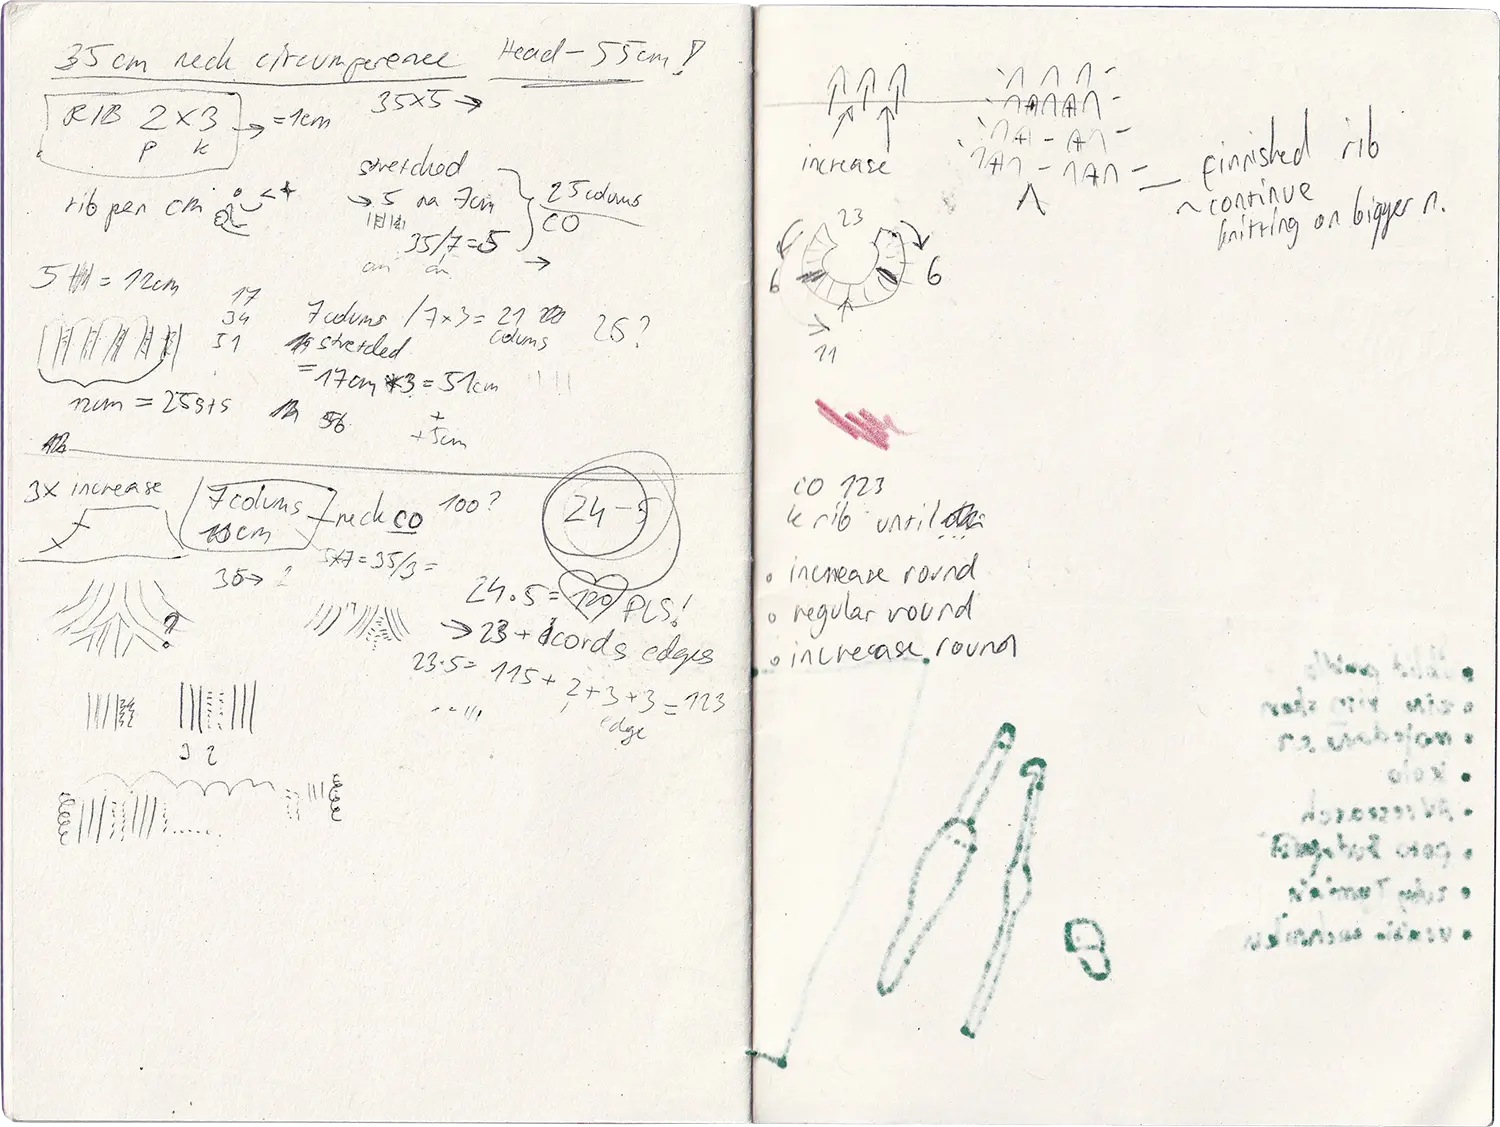 35cm neck circumperence Head - 55cm!
RIB 2x3 → = 1cm
p k
35x5 →
rib per cm
stretched
→ 5 na 7cm
35/7=5
25 colums
CO
→
5 = 12cm
17
34
51
7 colums / 7x3 = 21
colums
26?
stretched
= 17cm *3 = 51cm
+
+5cm
12cm = 25sts
56
3x increase
7 colums
10cm
neck CO
100?
24-5
5x7=35/3=
35→ 2
24.5= 120 PLS!
→ 23 + cords edges
23.5= 115+ 2+3+3 = 123
edge
?
3 2
increase
finnished rib
~ continue
knitting on bigger n.
23
6
6
11
CO 123
k rib until
• increase round
• regular round
• increase round